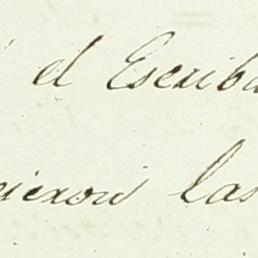 el Escriba
nieron las